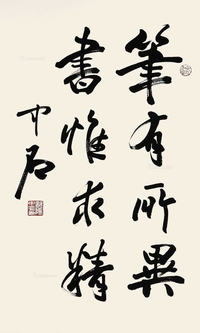 筆有所異
書惟求精
中石